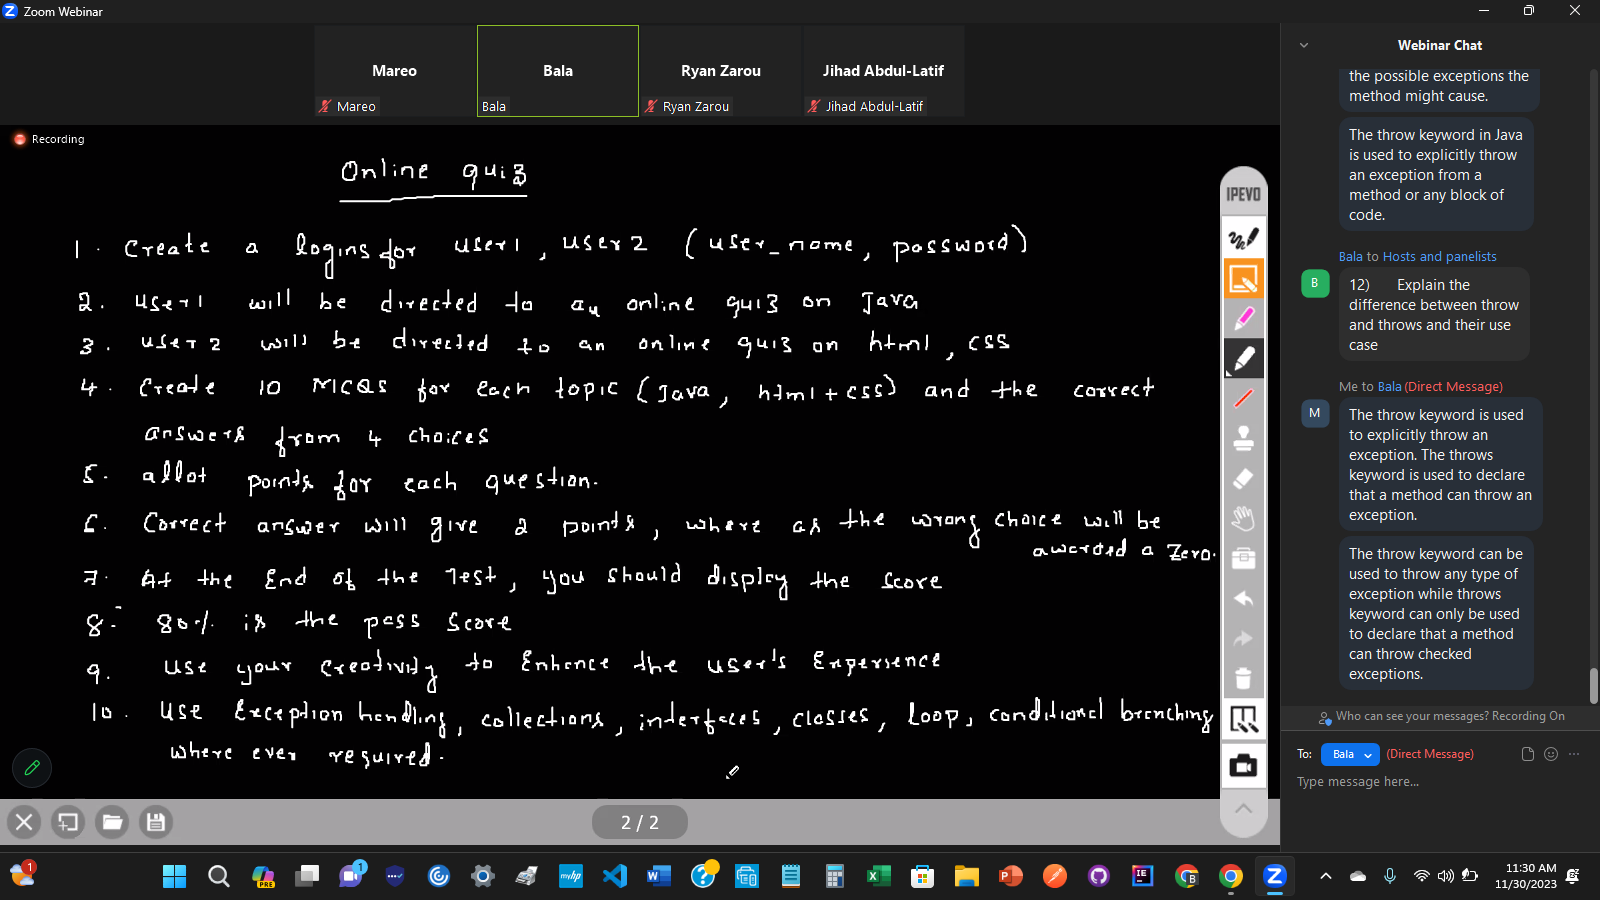 Zoom Webinar
Mareo
Bala
Ryan Zarou
Jihad Abdul-Latif
Mareo
Bala
Ryan Zarou
Jihad Abdul-Latif
Recording
Online quiz
1. Create a logins for user1, user2 (user_name, password)
2. user1 will be directed to an online quiz on Java
3. user2 will be directed to an online quiz on html, css
4. Create 10 MCQs for each topic (Java, html+css) and the correct
answers from 4 choices
5. allot points for each question.
6. Correct answer will give 2 points, where as the wrong choice will be
awarded a Zero.
7. At the End of the Test, you should display the score
8. 80% is the pass score
9. Use your creativity to Enhance the user's Experience
10. Use Exception handling, collections, interfaces, classes, loop, conditional branching
where ever required.
IPEVO
2 / 2
Webinar Chat
the possible exceptions the
method might cause.
The throw keyword in Java
is used to explicitly throw
an exception from a
method or any block of
code.
Bala to Hosts and panelists
B
12) Explain the
difference between throw
and throws and their use
case
Me to Bala (Direct Message)
M
The throw keyword is used
to explicitly throw an
exception. The throws
keyword is used to declare
that a method can throw an
exception.
The throw keyword can be
used to throw any type of
exception while throws
keyword can only be used
to declare that a method
can throw checked
exceptions.
Who can see your messages? Recording On
To: Bala (Direct Message)
Type message here...
1
PRE
1
myhp
11:30 AM
11/30/2023